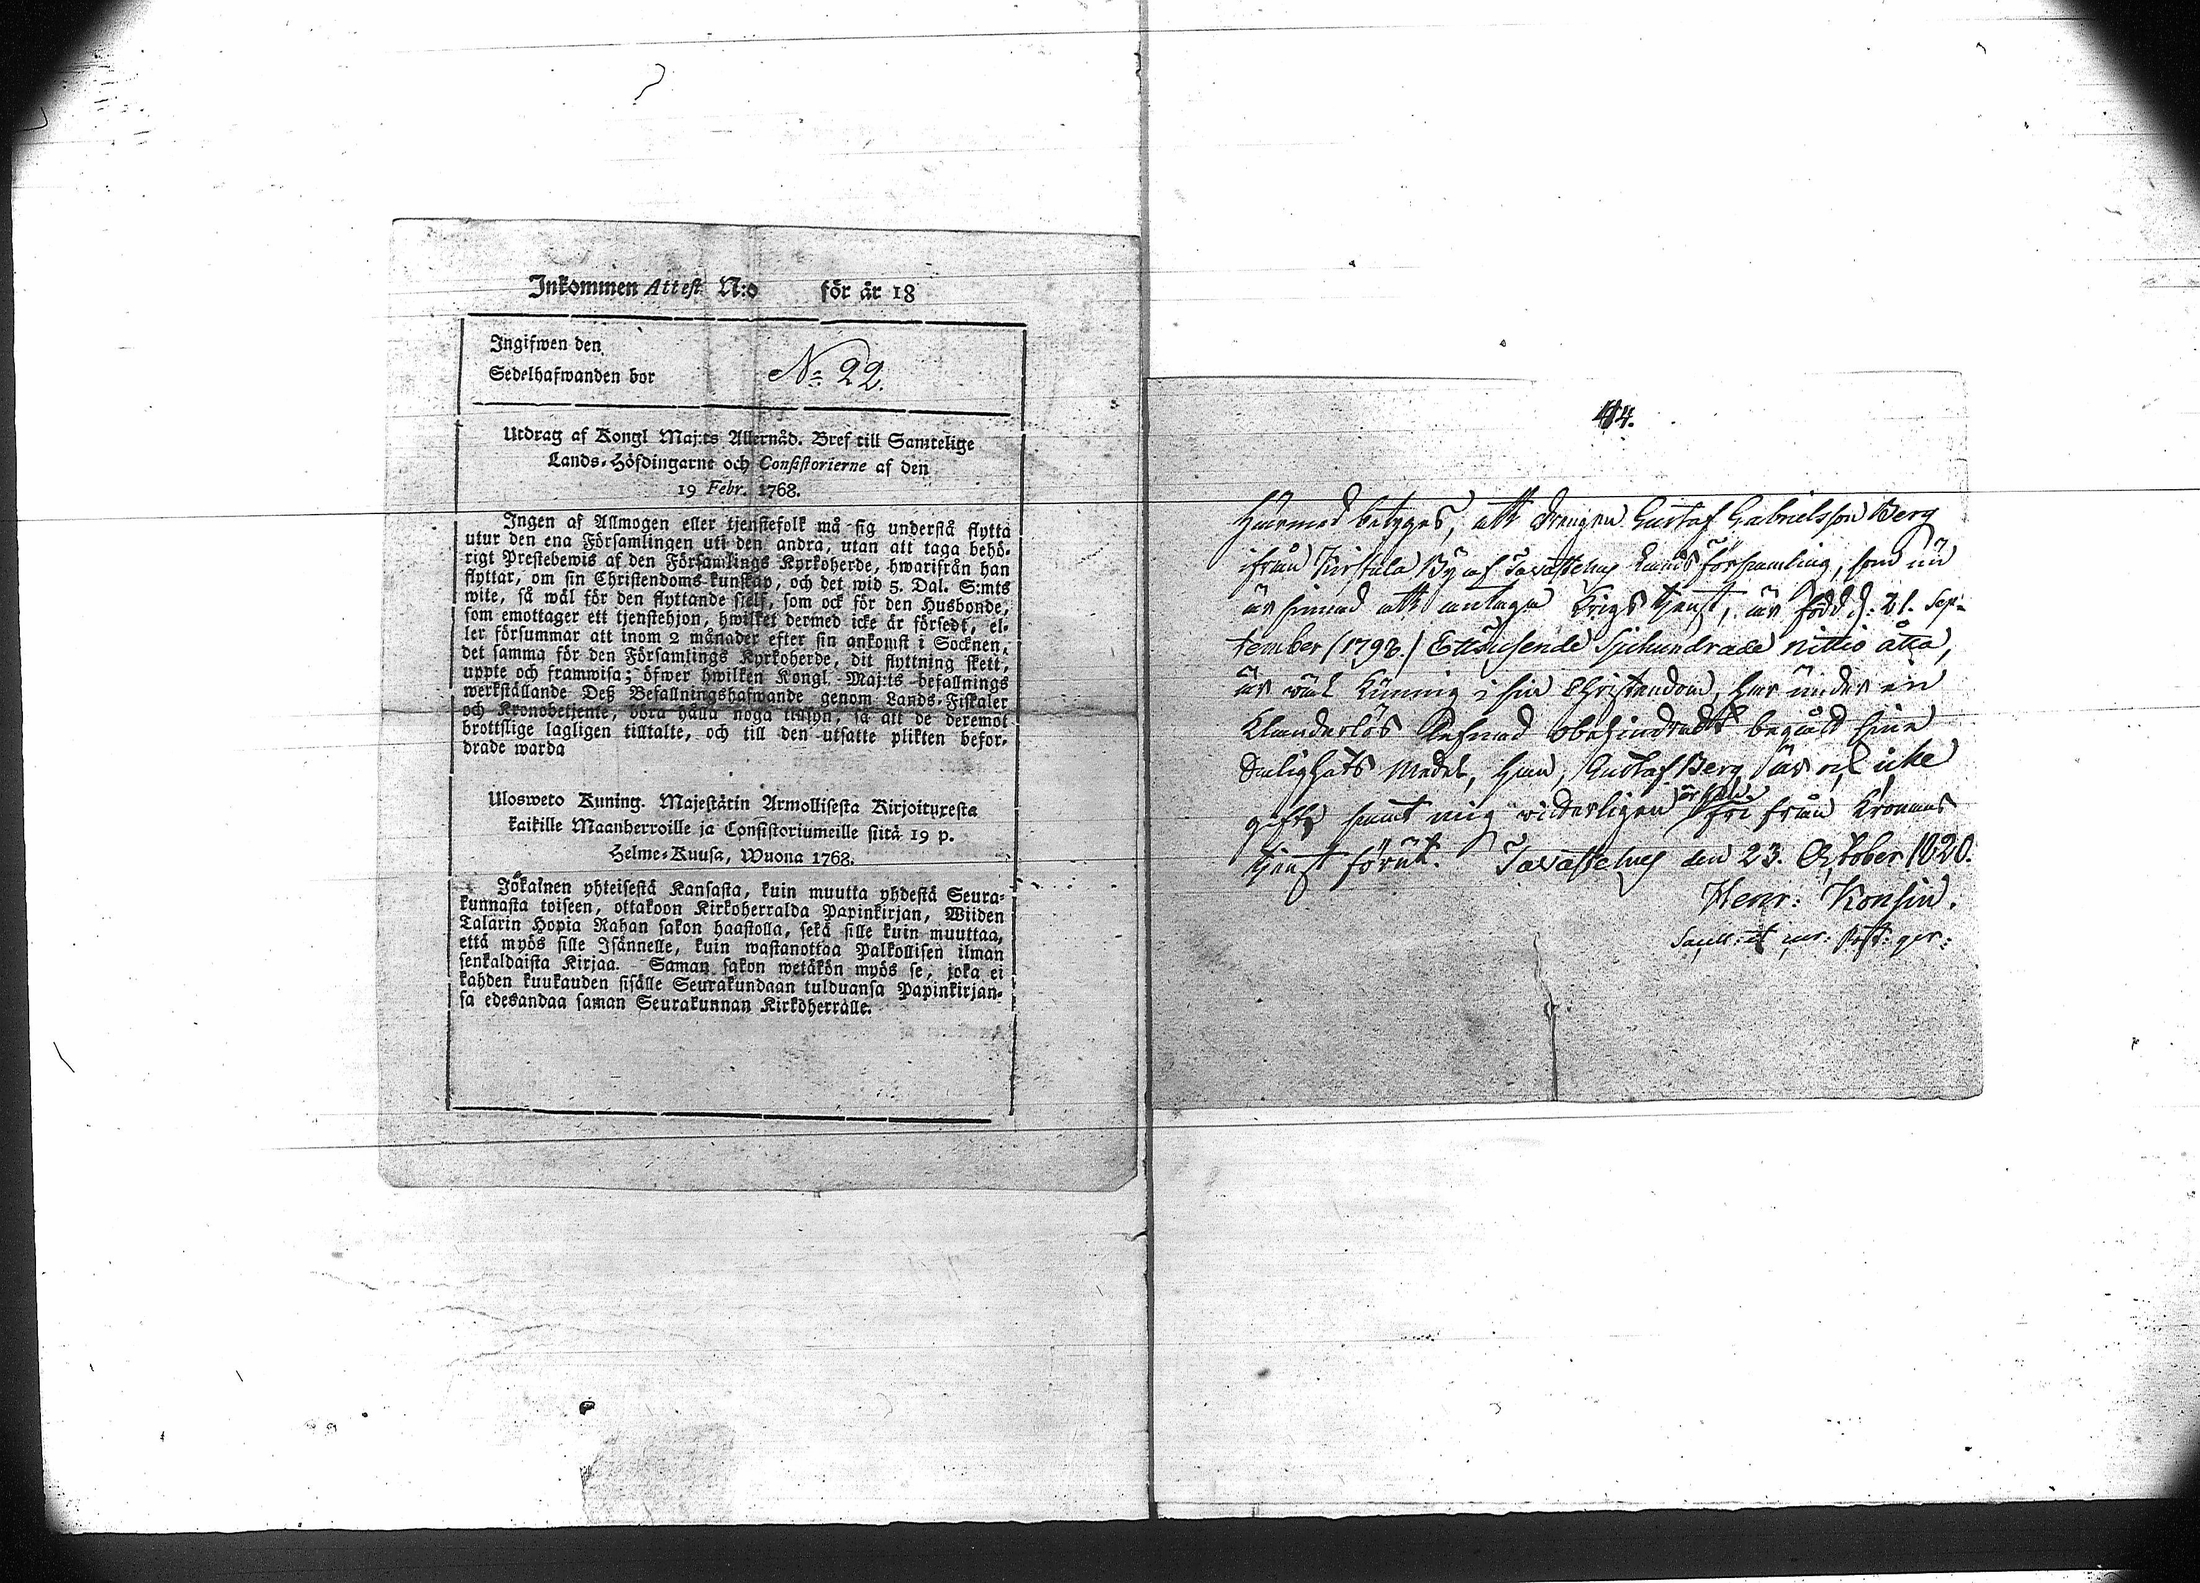 Inkommen Attest N:o för år 18
Ingifwen den
Sedelhafwanden bor
No 22.
Utdrag af Kongl Maj:ts Allernåd. Bref till Samtelige
Lands-Höfdingarne och Consistorierne af den
19 Febr. 1768.
Ingen af Allmogen eller tjenstefolk må sig understå flytta
utur den ena Församlingen uti den andra, utan att taga behö-
rigt Prestebewis af den Församlings Kyrkoherde, hwarifrån han
flyttar, om sin Christendoms-kunskap, och det wid 5. Dal. S:mts
wite, så wäl för den flyttande sjelf, som ock för den Husbonde,
som emottager ett tjenstehjon, hwilket dermed icke är försedt, el-
ler försummar att inom 2 månader efter sin ankomst i Socknen,
det samma för den Församlings Kyrkoherde, dit flyttning skett,
uppte och framwisa; öfwer hwilken Kongl. Maj:ts befallnings
werkställande Deß Befallningshafwande genom Lands-Fiskaler
och Kronobetjente, böra hålla noga tillsyn, så att de deremot
brottslige lagligen tilltalte, och till den utsatte plikten befor-
drade warda
Ulosweto Kuning. Majestätin Armollisesta Kirjoituxesta
kaikille Maanherroille ja Consistoriumeille siitä 19 p.
Helme-Kuusa, Wuona 1768.
Jokainen yhteisestä Kansasta, kuin muutta yhdestä Seura-
kunnasta toiseen, ottakoon Kirkoherralda Papinkirjan, Wiiden
Talarin Hopia Rahan sakon haastolla, sekä sille kuin muuttaa,
että myös sille Isännelle, kuin wastanottaa Palkollisen ilman
senkaldaista Kirjaa. Saman sakon wetäkön myös se, joka ei
kahden kuukauden sisälle Seurakundaan tulduansa Papinkirjan-
sa edesandaa saman Seurakunnan Kirkoherralle.
44.
Härmed betyges, att Drengen Gustaf Gabrielsson Berg
ifrån Kirstula By af Tavastehus Lands Församling, som nu
är sinnad att antaga Krigs tjenst, är född d: 21. Sep-
tember (1798.) Ettusende Sjuhundrade nittio åtta,
är wäl kunnig i sin Christendom, har under en
Klanderlös Lefnad obehindradt begått sina
Salighets Medel, Han, Gustaf Berg är ock icke
gift, samt mig witterligen är han fri från Kronans
tjenst förut. Tavastehus den 23. October 1820.
Henr: Konsin.